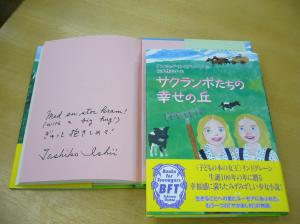 Med en stor kram!
(with a big hug!)
ぎゅっと抱きしめて!
Toshiko Ishii
サクランボたちの
幸せの丘
Books for Teenagers
BFT
《子どもの本の女王》リンドグレーン
生誕100年の年に贈る
幸福感に満ちたみずみずしい少女小説!